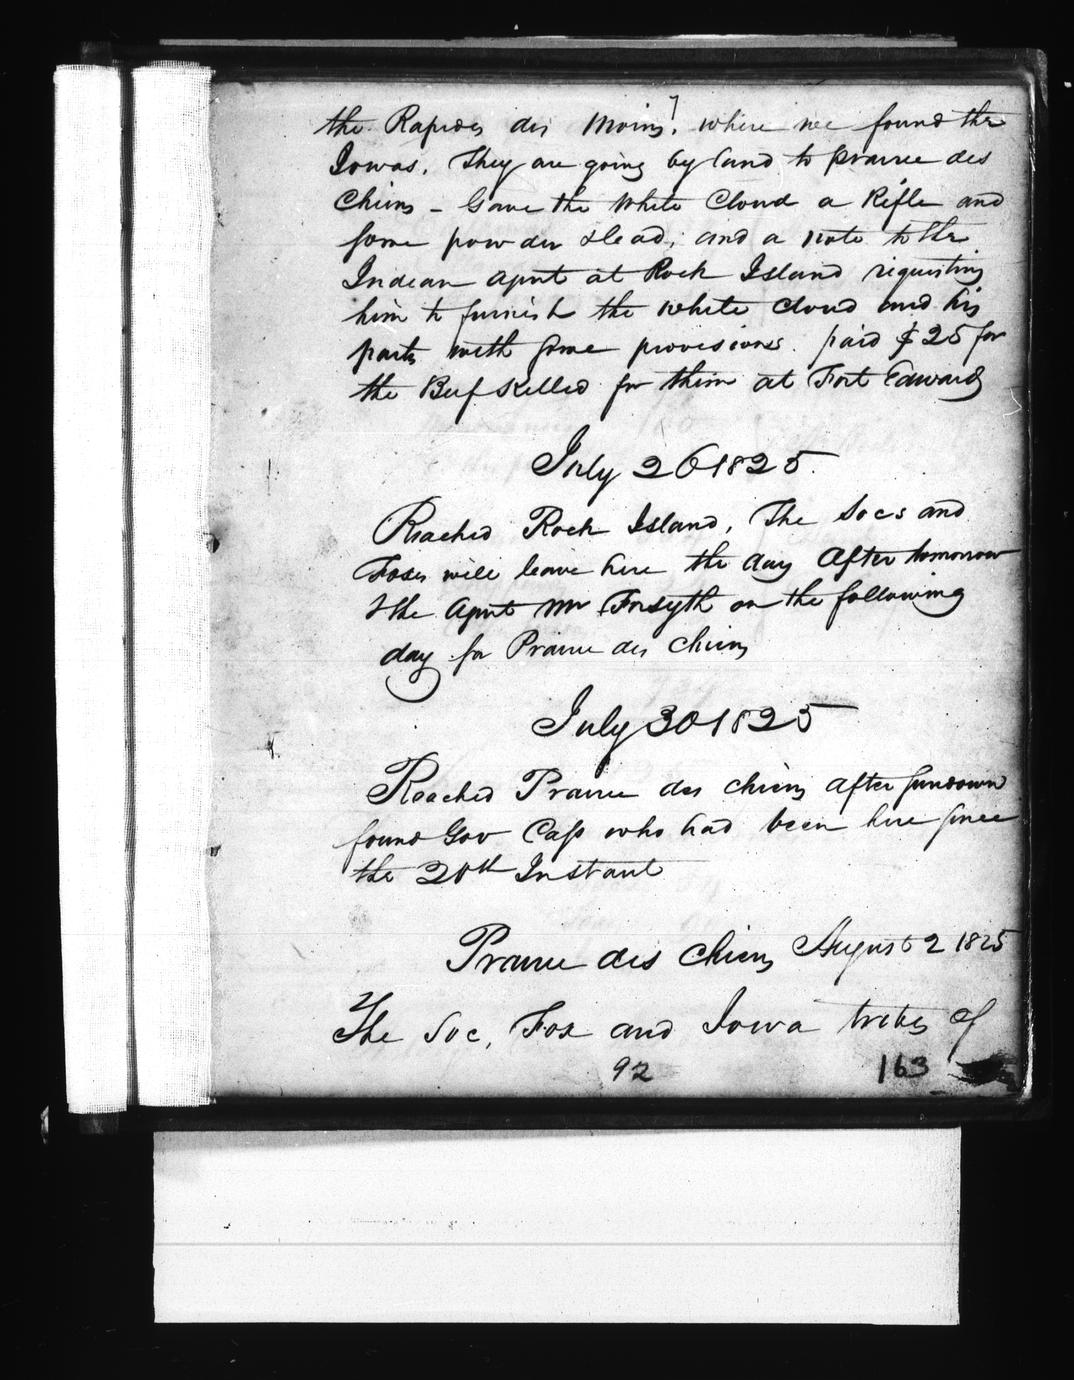 the Rapides des Moins, where we found the
Iowas. They are going by land to prairie des
Chiens - Gave the White Cloud a Rifle and
some powder & lead, and a note to the
Indian Agent at Rock Island requesting
him to furnish the White Cloud and his
party with some provisions. paid $25 for
the Beef Killed for them at Fort Edwards
July 26 1825.
Reached Rock Island, The Socs and
Foxes will leave here the day after tomorrow
& the Agent Mr Forsyth on the following
day for Prairie des Chiens
July 30 1825
Reached Prairie des Chiens after sundown
found Gov Cass who had been here since
the 20th Instant
Prairie des Chiens August 2 1825
The Soc, Fox and Iowa tribes of
92 163